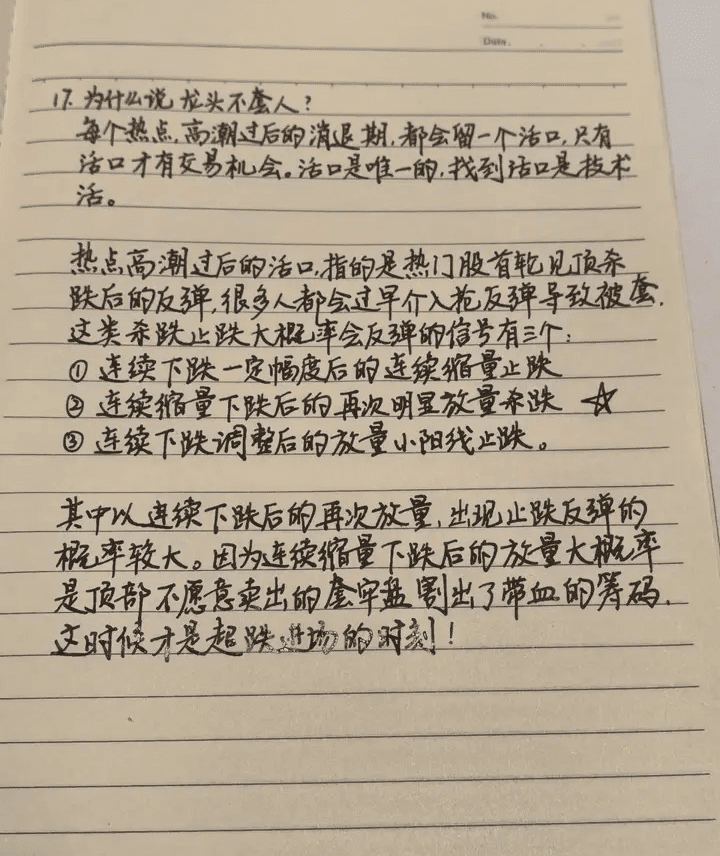 No.
Date.
17. 为什么说龙头不套人？
每个热点,高潮过后的消退期,都会留一个活口,只有
活口才有交易机会。活口是唯一的,找到活口是技术
活。
热点高潮过后的活口,指的是热门股首轮见顶杀
跌后的反弹,很多人都会过早介入抢反弹导致被套.
这类杀跌止跌大概率会反弹的信号有三个:
① 连续下跌一定幅度后的连续缩量止跌
② 连续缩量下跌后的再次明显放量杀跌 ☆
③ 连续下跌调整后的放量小阳线止跌。
其中以连续下跌后的再次放量,出现止跌反弹的
概率较大。因为连续缩量下跌后的放量大概率
是顶部不愿意卖出的套牢盘割出了带血的筹码.
这时候才是超跌进场的时刻!